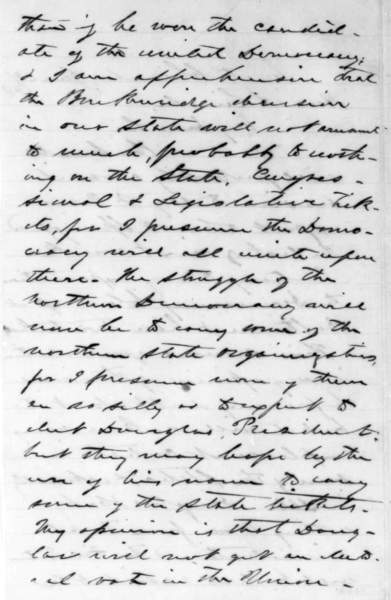 than if he were the candid-
ate of the united Democracy;
& I am apprehensive that
the Breckinridge diversion
in our State will not amount
to much, probably to noth-
ing on the State, Congres-
sional & Legislative Tick-
ets, for I presume the Demo-
cracy will all unite upon
these. The struggle of the
Northern Democracy will
now be to carry some of the
northern State organizations,
for I presume none of them
are so silly as to expect to
elect Douglas, President.
but they may hope by the
use of his name to carry
some of the State tickets.
My opinion is that Doug-
las will not get an elect-
oral vote in the Union.